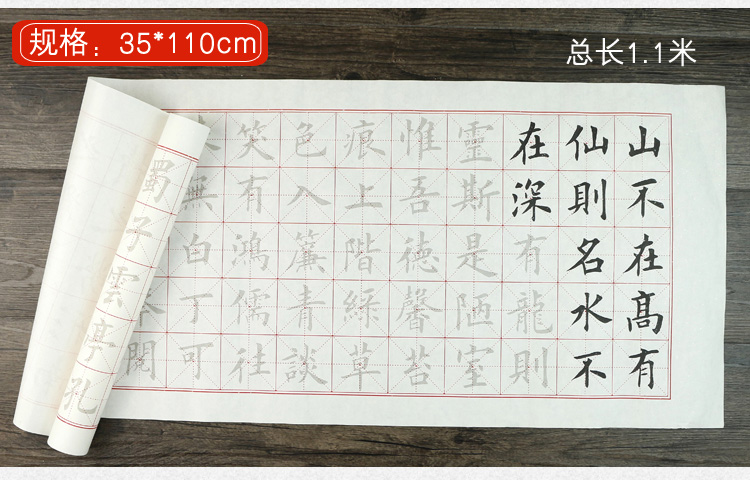 规格：35*110cm
总长1.1米
山不在髙有
仙則名水不
在深有龍則
靈斯是陋室
惟吾德馨苔
痕上階綠草
色入簾青談
笑有鴻儒往
無白丁可
閱
蜀子雲亭孔